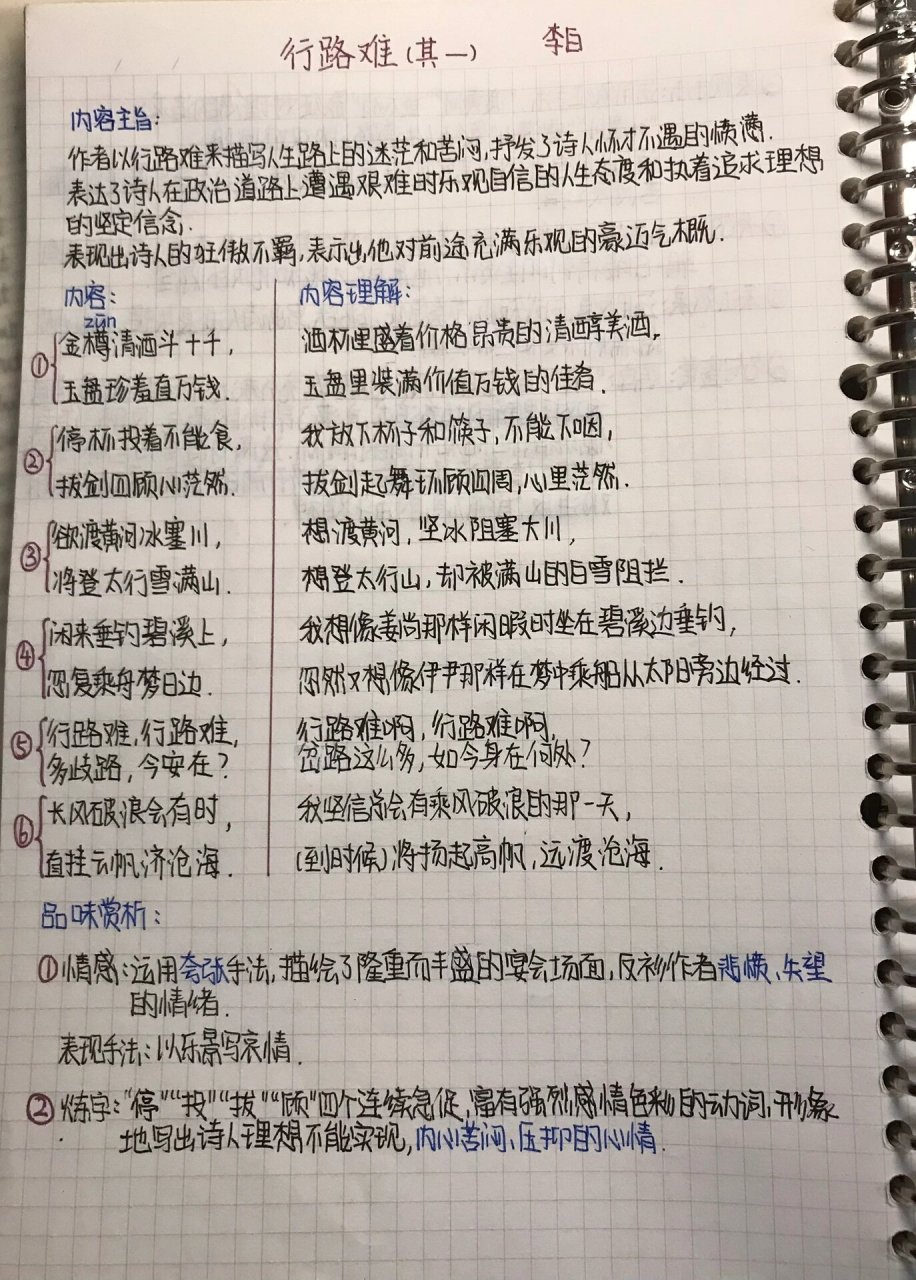 行路难(其一) 李白
内容主旨:
作者以行路难来描写人生路上的迷茫和苦闷,抒发了诗人怀才不遇的愤懑.
表达了诗人在政治道路上遭遇艰难时乐观自信的人生态度和执着追求理想
的坚定信念.
表现出诗人的狂傲不羁,表示出他对前途充满乐观的豪迈气概.
内容: 内容理解:
zūn
① 金樽清酒斗十千, 酒杯里盛着价格昂贵的清醇美酒,
玉盘珍羞直万钱. 玉盘里装满价值万钱的佳肴.
② 停杯投着不能食, 我放下杯子和筷子,不能下咽,
拔剑四顾心茫然. 拔剑起舞环顾四周,心里茫然.
③ 欲渡黄河冰塞川, 想渡黄河,坚冰阻塞大川,
将登太行雪满山. 想登太行山,却被满山的白雪阻拦.
④ 闲来垂钓碧溪上, 我想像姜尚那样闲暇时坐在碧溪边垂钓,
忽复乘舟梦日边. 忽然又想像伊尹那样在梦中乘船从太阳旁边经过.
⑤ 行路难,行路难, 行路难啊,行路难啊,
多歧路,今安在? 岔路这么多,如今身在何处?
⑥ 长风破浪会有时, 我坚信总会有乘风破浪的那一天,
直挂云帆济沧海. (到时候)将扬起高帆,远渡沧海.
品味赏析:
①情感:运用夸张手法,描绘了隆重而丰盛的宴会场面,反衬作者悲愤、失望
的情绪.
表现手法:以乐景写哀情.
②炼字:"停""投""拔""顾"四个连续急促,富有强烈感情色彩的动词,形象
地写出诗人理想不能实现,内心苦闷、压抑的心情.